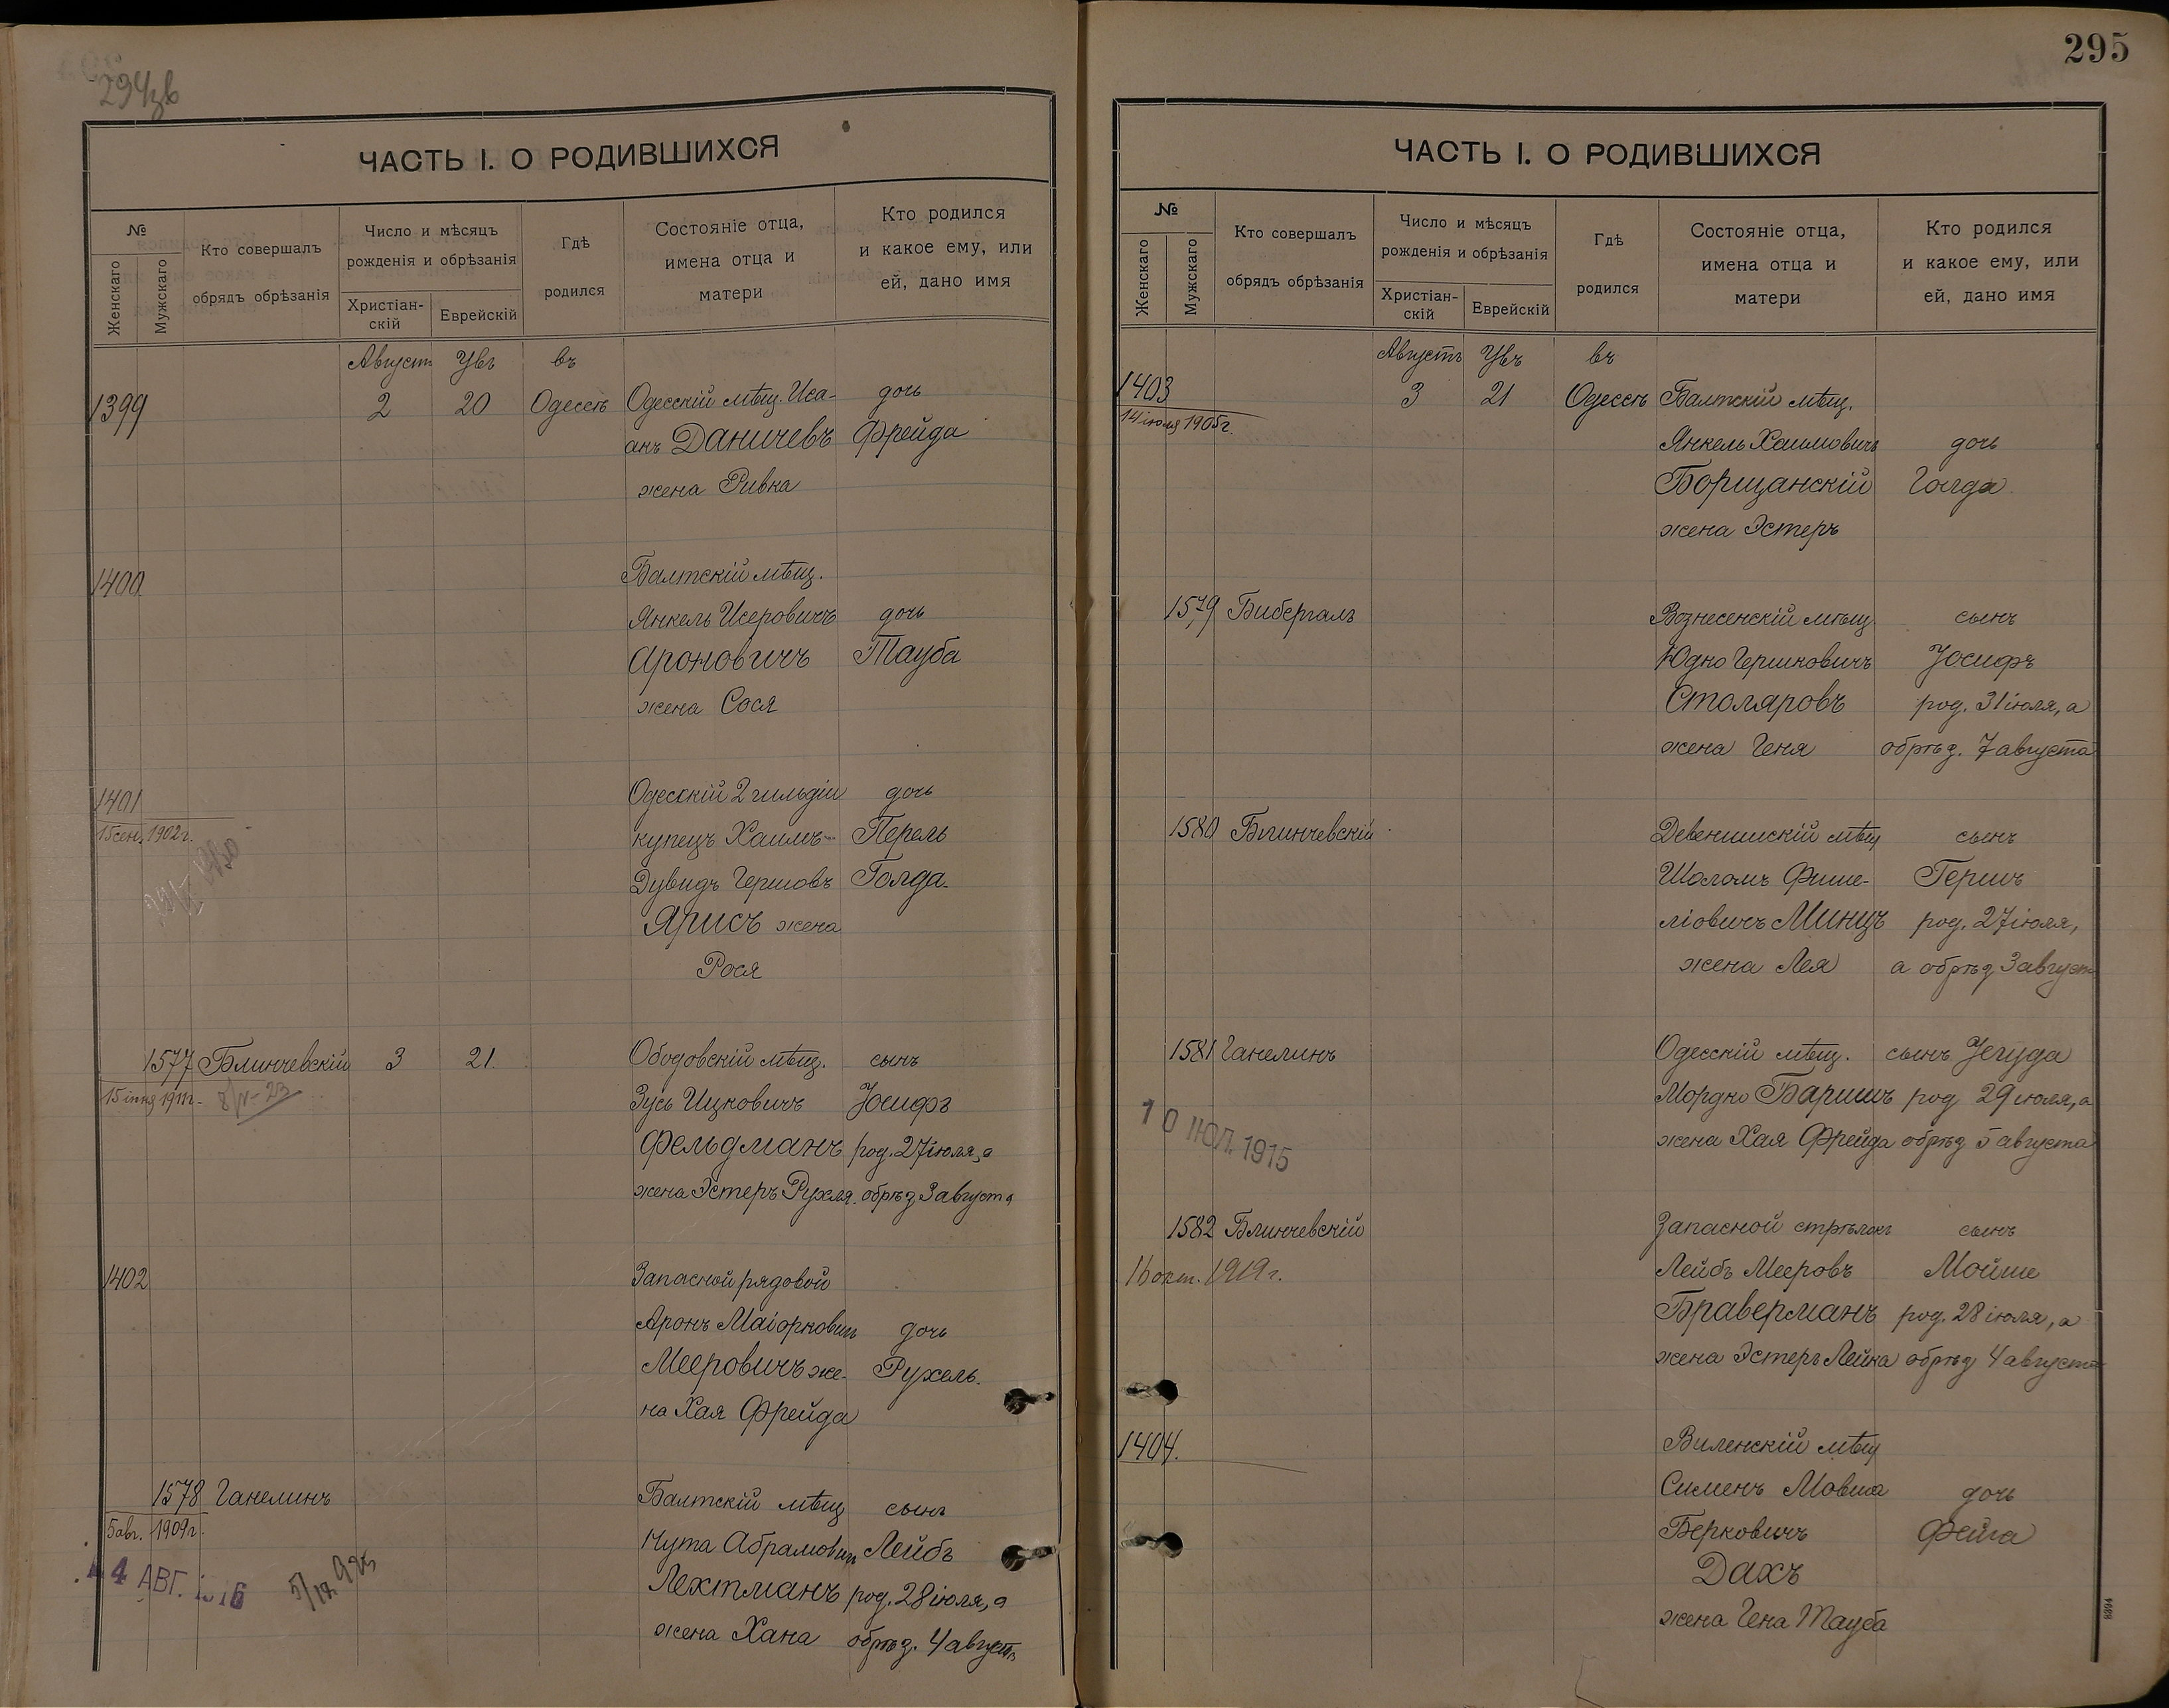 294зв
ЧАСТЬ I. О РОДИВШИХСЯ
№
Женскаго
Мужскаго
Кто совершалъ
обрядъ обрѣзанія
Число и мѣсяцъ
рожденія и обрѣзанія
Христіан-
скій
Еврейскій
Гдѣ
родился
Состояніе отца,
имена отца и
матери
Кто родился
и какое ему, или
ей, дано имя
Август Увъ въ
1399 2 20 Одессѣ Одесскій мѣщ. Иса- дочь
акъ Даничевъ Фрейда
жена Ривка
1400 Балтскій мѣщ.
Янкель Исеровичъ дочь
Ароновичъ Тауба
жена Сося
1401 Одесскій 2 гильдіи дочь
15 сен. 1902 г. купецъ Хаимъ- Перель
Дувидъ Гершовъ Голда.
Ярисъ жена
Рося
1577 Блинчевскій 3 21. Ободовскій мѣщ. сынъ
15 іюня 1911г. Зусь Ицковичъ Іосифъ
Фельдманъ род. 27 іюля, а
жена Эстеръ Рухля. обрѣз 3 августа
1402 Запасной рядовой
Аронъ Маіорковичъ дочь
Мееровичъ же- Рухель.
на Хая Фрейда
1578 Ганелинъ Балтскій мѣщ сынъ
5 авг. 1909 г. Нута Абрамовичъ Лейбъ
4 АВГ. 1916 Лехтманъ род. 28 іюля, а
жена Хана обрѣз. 4 августа
295
ЧАСТЬ I. О РОДИВШИХСЯ
№
Женскаго
Мужскаго
Кто совершалъ
обрядъ обрѣзанія
Число и мѣсяцъ
рожденія и обрѣзанія
Христіан-
скій
Еврейскій
Гдѣ
родился
Состояніе отца,
имена отца и
матери
Кто родился
и какое ему, или
ей, дано имя
Августъ Увъ въ
1403 3 21 Одессѣ Балтскій мѣщ.
14 іюля 1905 г.
Янкель Хаимовичъ дочь
Борщанскій Голда
жена Эстеръ
1579 Бибергаль Вознесенскій мѣщ сынъ
Юдко Гершковичъ Іосифъ
Столяровъ род. 31 іюля, а
жена Геня обрѣз. 7 августа
1580 Блинчевскій Девенишскій мѣщ сынъ
Шоломъ Фише- Гершъ
ліовичъ Минцъ род. 27 іюля,
жена Лея а обрѣз 3 август
1581 Ганелинъ Одесскій мѣщ. сынъ Іегуда
Мордко Баришъ род 29 іюля, а
10 ІЮЛ. 1915 жена Хая Фрейда обрѣз 5 августа
1582 Блинчевскій Запасной стрѣлокъ сынъ
16 окт. 1919 г. Лейбъ Мееровъ Мойше
Браверманъ род. 28 іюля, а
жена Эстеръ Лейка обрѣз 4 августа
1404. Виленскій мѣщ
Сименъ Мовша дочь
Берковичъ Фейга
Дахъ
жена Гена Тауба